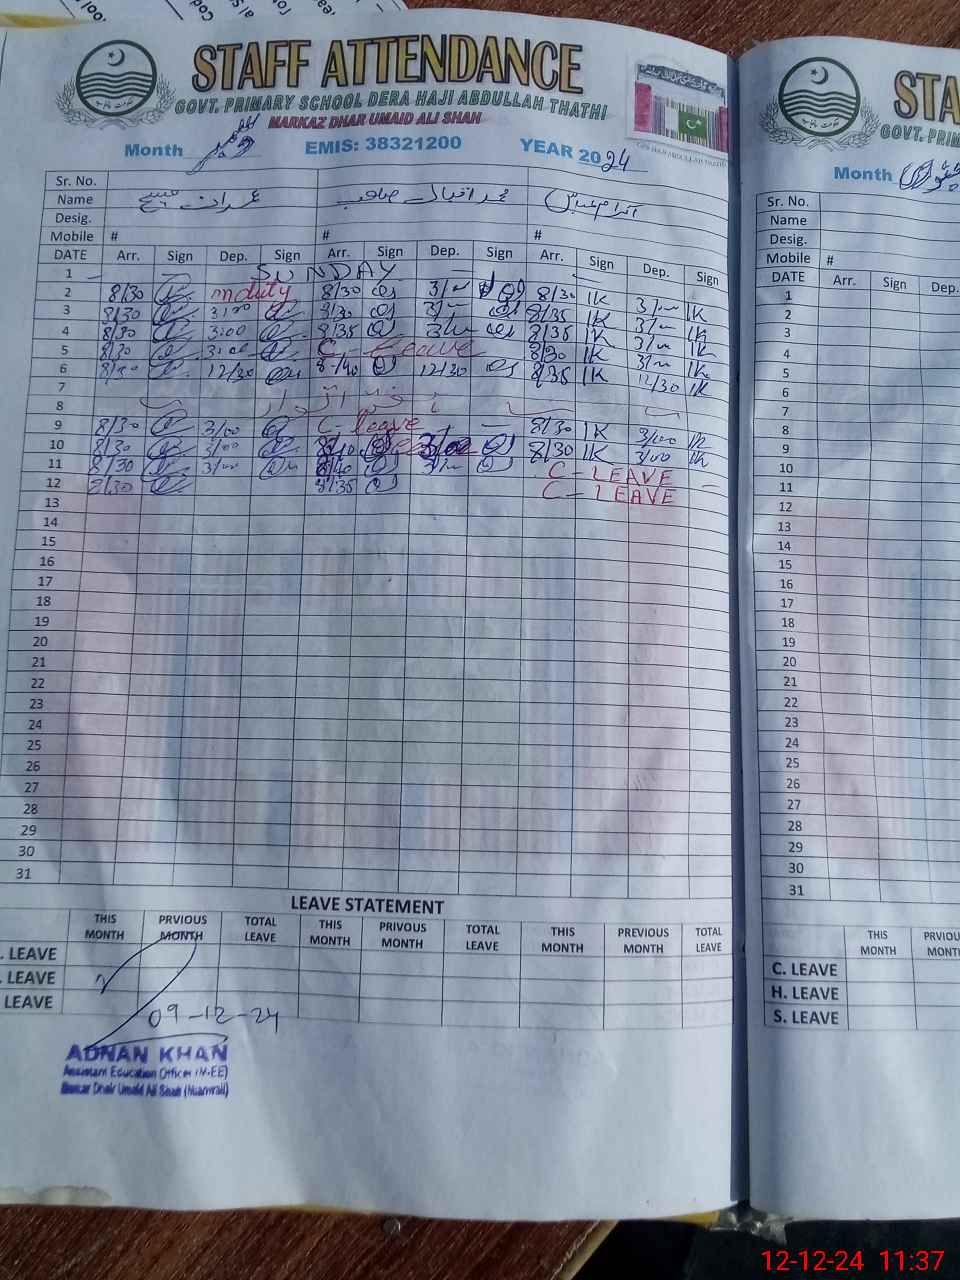 STAFF ATTENDANCE
GOVT. PRIMARY SCHOOL DERA HAJI ABDULLAH THATHI
MARKAZ DHAR UMAID ALI SHAH
Month دسمبر EMIS: 38321200 YEAR 2024
Sr. No.
Name عمران مسیح محمد اقبال صاحب
Desig.
Mobile # # #
DATE Arr. Sign Dep. Sign Arr. Sign Dep. Sign Arr. Sign Dep. Sign
1 SUNDAY
2 8/30 m duty 8/30 3/00 8/30 1K 3/00 1K
3 8/30 3:00 8/30 3/00 8/35 1K 3/00 1K
4 8/30 3:00 8/35 3/00 8/35 1K 3/00 1K
5 8/30 3:00 C - leave 8/30 1K 3/00 1K
6 12/30 8/40 12/30 8/35 1K 12/30 1K
7
8 اتوار
9 8/30 3/00 C - leave 8/30 1K 3/00 1K
10 8/30 3/00 3/00 8/30 1K 3/00 1K
11 8/30 3/00 8/40 3/00 C - LEAVE
12 8/30 8/35 C - LEAVE
13
14
15
16
17
18
19
20
21
22
23
24
25
26
27
28
29
30
31
LEAVE STATEMENT
THIS MONTH PRVIOUS MONTH TOTAL LEAVE THIS MONTH PRIVOUS MONTH TOTAL LEAVE THIS MONTH PREVIOUS MONTH TOTAL LEAVE
. LEAVE
. LEAVE
LEAVE
09-12-24
ADNAN KHAN
Assistant Education Officer (M-EE)
Markaz Dhair Umaid Ali Shah (Mianwali)
STA
GOVT. PRIM
Month جنوری
Sr. No.
Name
Desig.
Mobile #
DATE Arr. Sign Dep.
1
2
3
4
5
6
7
8
9
10
11
12
13
14
15
16
17
18
19
20
21
22
23
24
25
26
27
28
29
30
31
THIS MONTH PRVIOU MONT
C. LEAVE
H. LEAVE
S. LEAVE
12-12-24 11:37